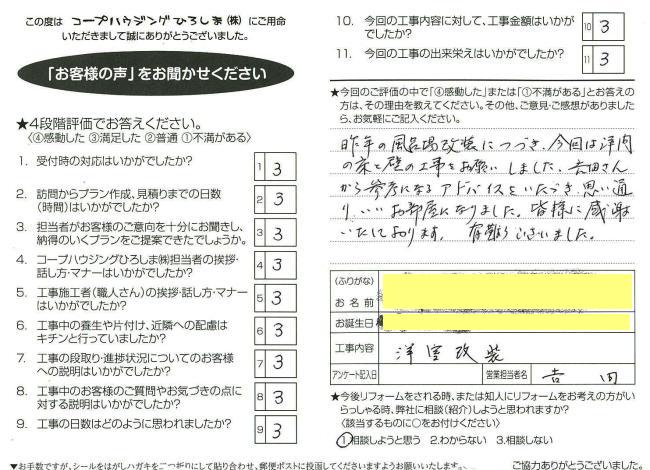 この度は コープハウジングひろしま(株) にご用命
いただきまして誠にありがとうございました。
「お客様の声」をお聞かせください
★4段階評価でお答えください。
〈④感動した ③満足した ②普通 ①不満がある〉
1. 受付時の対応はいかがでしたか?
1 3
2. 訪問からプラン作成、見積りまでの日数
(時間)はいかがでしたか?
2 3
3. 担当者がお客様のご意向を十分にお聞きし、
納得のいくプランをご提案できたでしょうか。
3 3
4. コープハウジングひろしま㈱担当者の挨拶・
話し方・マナーはいかがでしたか?
4 3
5. 工事施工者(職人さん)の挨拶・話し方・マナー
はいかがでしたか?
5 3
6. 工事中の養生や片付け、近隣への配慮は
キチンと行っていましたか?
6 3
7. 工事の段取り・進捗状況についてのお客様
への説明はいかがでしたか?
7 3
8. 工事中のお客様のご質問やお気づきの点に
対する説明はいかがでしたか?
8 3
9. 工事の日数はどのように思われましたか?
9 3
10. 今回の工事内容に対して、工事金額はいかが
でしたか?
10 3
11. 今回の工事の出来栄えはいかがでしたか?
11 3
★今回のご評価の中で「④感動した」または「①不満がある」とお答えの
方は、その理由を教えてください。その他、ご意見・ご感想がありました
ら、お気軽にご記入ください。
昨年の風呂場改装につづき、今回は洋間
の床と壁の工事をお願いしました。吉田さん
から参考になるアドバイスをいただき、思い通
り、いいお部屋になりました。皆様に感謝
いたしております。有難うございました。
(ふりがな)
お名前
お誕生日
工事内容 洋室改装
アンケート記入日 営業担当者名 吉田
★今後リフォームをされる時、または知人にリフォームをお考えの方がい
らっしゃる時、弊社に相談(紹介)しようと思われますか?
〈該当するものに○をお付けください〉
1.相談しようと思う 2.わからない 3.相談しない
▼お手数ですが、シールをはがしハガキを二つ折りにして貼り合わせ、郵便ポストに投函してくださいますようお願いいたします。
ご協力ありがとうございました。